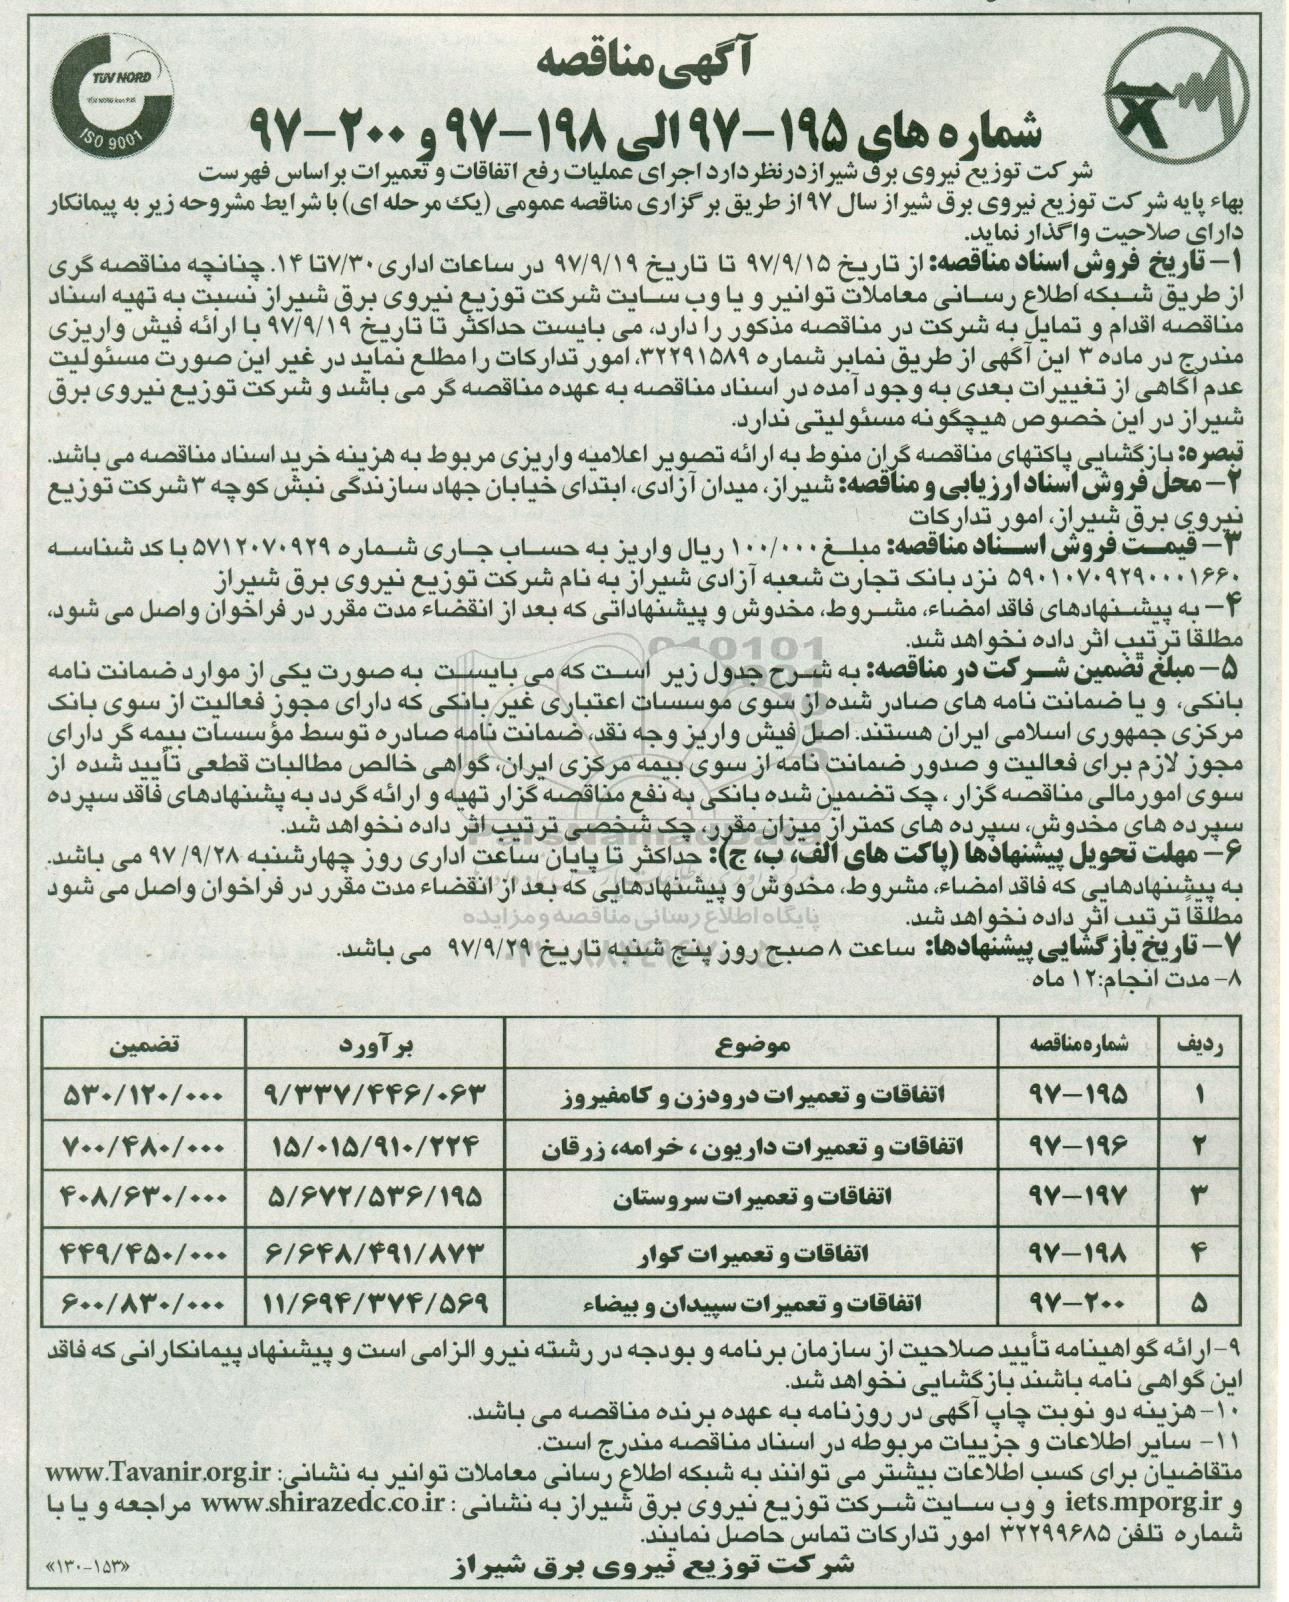 آگهی مناقصه
شماره های ۱۹۵-۹۷ الی ۱۹۸-۹۷ و ۲۰۰-۹۷
TÜV NORD
ISO 9001
شرکت توزیع نیروی برق شیراز درنظر دارد اجرای عملیات رفع اتفاقات و تعمیرات بر اساس فهرست
بهاء پایه شرکت توزیع نیروی برق شیراز سال ۹۷ از طریق برگزاری مناقصه عمومی (یک مرحله ای) با شرایط مشروحه زیر به پیمانکار
دارای صلاحیت واگذار نماید.
۱- تاریخ فروش اسناد مناقصه: از تاریخ ۹۷/۹/۱۵ تا تاریخ ۹۷/۹/۱۹ در ساعات اداری ۷/۳۰ تا ۱۴. چنانچه مناقصه گری
از طریق شبکه اطلاع رسانی معاملات توانیر و یا وب سایت شرکت توزیع نیروی برق شیراز نسبت به تهیه اسناد
مناقصه اقدام و تمایل به شرکت در مناقصه مذکور را دارد، می بایست حداکثر تا تاریخ ۹۷/۹/۱۹ با ارائه فیش واریزی
مندرج در ماده ۳ این آگهی از طریق نمابر شماره ۳۲۲۹۱۵۸۹، امور تدارکات را مطلع نماید در غیر این صورت مسئولیت
عدم آگاهی از تغییرات بعدی به وجود آمده در اسناد مناقصه به عهده مناقصه گر می باشد و شرکت توزیع نیروی برق
شیراز در این خصوص هیچگونه مسئولیتی ندارد.
تبصره: بازگشایی پاکتهای مناقصه گران منوط به ارائه تصویر اعلامیه واریزی مربوط به هزینه خرید اسناد مناقصه می باشد.
۲- محل فروش اسناد ارزیابی و مناقصه: شیراز، میدان آزادی، ابتدای خیابان جهاد سازندگی نبش کوچه ۳ شرکت توزیع
نیروی برق شیراز، امور تدارکات
۳- قیمت فروش اسناد مناقصه: مبلغ ۱۰۰/۰۰۰ ریال واریز به حساب جاری شماره ۵۷۱۲۰۷۰۹۲۹ با کد شناسه
۵۹۰۱۰۷۰۹۲۹۰۰۰۱۶۶۰ نزد بانک تجارت شعبه آزادی شیراز به نام شرکت توزیع نیروی برق شیراز
۴- به پیشنهادهای فاقد امضاء، مشروط، مخدوش و پیشنهاداتی که بعد از انقضاء مدت مقرر در فراخوان واصل می شود،
مطلقا ترتیب اثر داده نخواهد شد.
۵- مبلغ تضمین شرکت در مناقصه: به شرح جدول زیر است که می بایست به صورت یکی از موارد ضمانت نامه
بانکی، و یا ضمانت نامه های صادر شده از سوی موسسات اعتباری غیر بانکی که دارای مجوز فعالیت از سوی بانک
مرکزی جمهوری اسلامی ایران هستند. اصل فیش واریز وجه نقد، ضمانت نامه صادره توسط مؤسسات بیمه گر دارای
مجوز لازم برای فعالیت و صدور ضمانت نامه از سوی بیمه مرکزی ایران، گواهی خالص مطالبات قطعی تأیید شده از
سوی امورمالی مناقصه گزار، چک تضمین شده بانکی به نفع مناقصه گزار تهیه و ارائه گردد به پشنهادهای فاقد سپرده
سپرده های مخدوش، سپرده های کمتراز میزان مقرر، چک شخصی ترتیب اثر داده نخواهد شد.
۶- مهلت تحویل پیشنهادها (پاکت های الف، ب، ج): حداکثر تا پایان ساعت اداری روز چهارشنبه ۹۷/۹/۲۸ می باشد.
به پیشنهادهایی که فاقد امضاء، مشروط، مخدوش و پیشنهادهایی که بعد از انقضاء مدت مقرر در فراخوان واصل می شود
مطلقاً ترتیب اثر داده نخواهد شد.
پایگاه اطلاع رسانی مناقصه و مزایده
۷- تاریخ بازگشایی پیشنهادها: ساعت ۸ صبح روز پنج شنبه تاریخ ۹۷/۹/۲۹ می باشد.
۸- مدت انجام: ۱۲ ماه
ردیف شماره مناقصه موضوع برآورد تضمین
۱ ۹۷-۱۹۵ اتفاقات و تعمیرات درودزن و کامفیروز ۹/۳۳۷/۴۴۶/۰۶۳ ۵۳۰/۱۲۰/۰۰۰
۲ ۹۷-۱۹۶ اتفاقات و تعمیرات داریون، خرامه، زرقان ۱۵/۰۱۵/۹۱۰/۲۲۴ ۷۰۰/۴۸۰/۰۰۰
۳ ۹۷-۱۹۷ اتفاقات و تعمیرات سروستان ۵/۶۷۲/۵۳۶/۱۹۵ ۴۰۸/۶۳۰/۰۰۰
۴ ۹۷-۱۹۸ اتفاقات و تعمیرات کوار ۶/۶۴۸/۴۹۱/۸۷۳ ۴۴۹/۴۵۰/۰۰۰
۵ ۹۷-۲۰۰ اتفاقات و تعمیرات سپیدان و بیضاء ۱۱/۶۹۴/۳۷۴/۵۶۹ ۶۰۰/۸۳۰/۰۰۰
۹- ارائه گواهینامه تأیید صلاحیت از سازمان برنامه و بودجه در رشته نیرو الزامی است و پیشنهاد پیمانکارانی که فاقد
این گواهی نامه باشند بازگشایی نخواهد شد.
۱۰- هزینه دو نوبت چاپ آگهی در روزنامه به عهده برنده مناقصه می باشد.
۱۱- سایر اطلاعات و جزییات مربوطه در اسناد مناقصه مندرج است.
متقاضیان برای کسب اطلاعات بیشتر می توانند به شبکه اطلاع رسانی معاملات توانیر به نشانی: www.Tavanir.org.ir
و iets.mporg.ir و وب سایت شرکت توزیع نیروی برق شیراز به نشانی: www.shirazedc.co.ir مراجعه و یا با
شماره تلفن ۳۲۲۹۹۶۸۵ امور تدارکات تماس حاصل نمایند.
شرکت توزیع نیروی برق شیراز
«۱۳۰-۱۵۳»